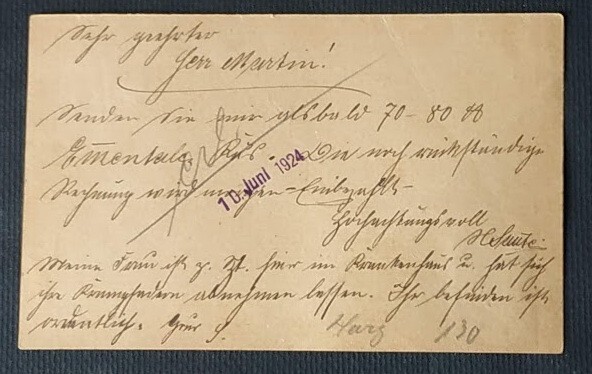 Sehr geehrter
Herr Martin!
Senden Sie mir alsbald 70-80 ℔
Emmentaler Käs. Die noch rückständige
Rechnung wird morgen Einbezahlt
10. Juni 1924
Hochachtungsvoll
Meine Frau ist z. Zt. hier im Krankenhaus u. hat sich
ihre Krampfadern abnehmen lassen. Ihr befinden ist
ordentlich.
Harz 130